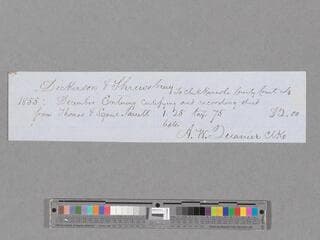 Dickinson & Shrewsbury To Clk Kanawha County Court Dr
1855: December Entering certifying and recording deed
from Thomas & Lyon 1.25 tax 75 $2.00
A. W. Quarrier Clk